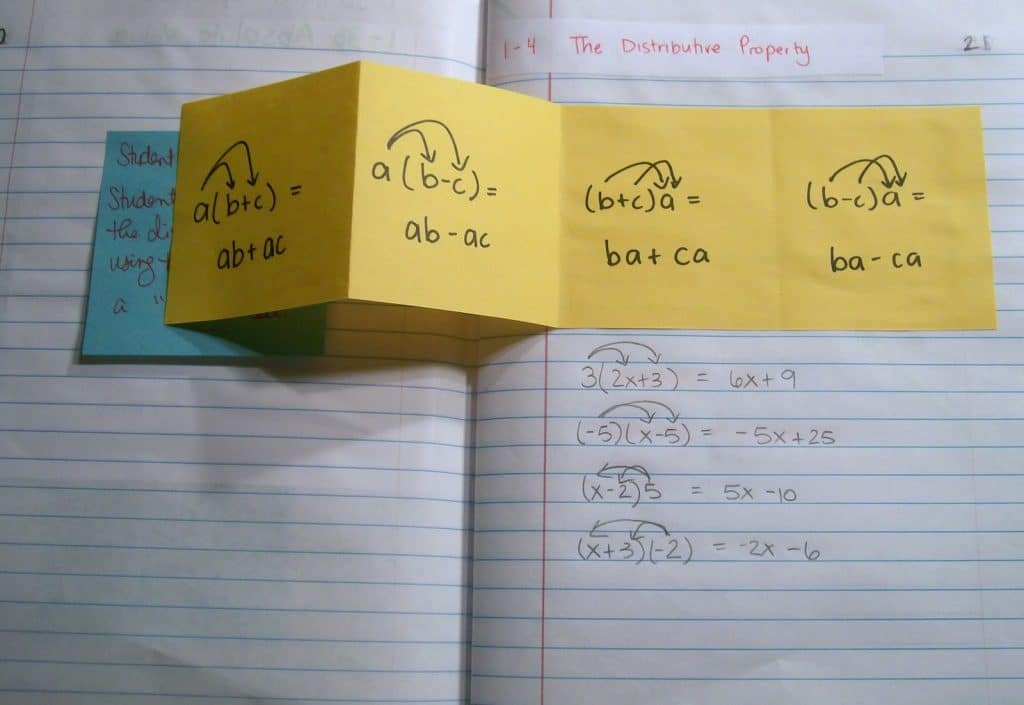 1-4 The Distributive Property
21
Student
Student
the
using
a "
a(b+c) =
ab+ac
a(b-c)=
ab-ac
(b+c)a =
ba+ca
(b-c)a =
ba-ca
3(2x+3) = 6x+9
(-5)(x-5) = -5x+25
(x-2)5 = 5x-10
(x+3)(-2) = -2x-6